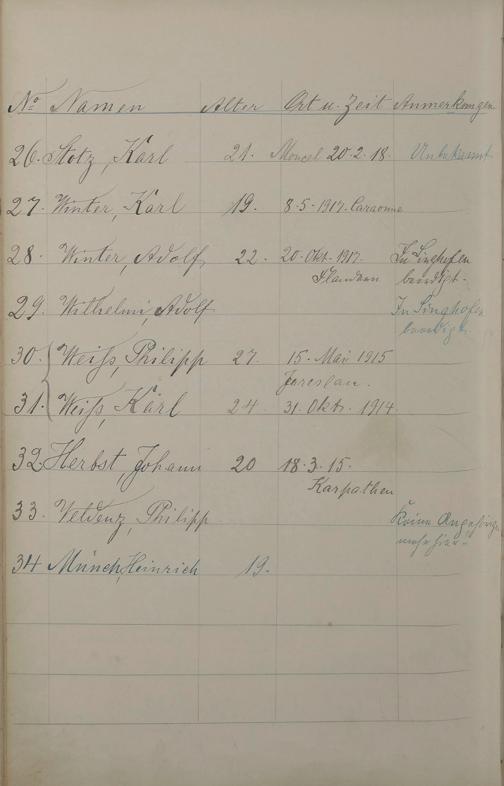 No Namen Alter Ort u. Zeit Anmerkungen
26. Stotz, Karl 21. Moncel 20.2.18. Unbekannt
27. Winter, Karl 19. 8.5.1917. Caraonne
28. Winter, Adolf 22. 20. Okt. 1917. In Singhofen
Flandern beerdigt.
29. Wilhelmi, Adolf In Singhofen
beerdigt.
30. Weiß, Philipp 27. 15. Mai 1915
Jareslau.
31. Weiß, Karl 24. 31. Okt. 1914.
32. Herbst, Johann 20 18.3.15.
Karpathen
33. Veldenz, Philipp Keine Angehörige
mehr hier.
34 Münch, Heinrich 19.